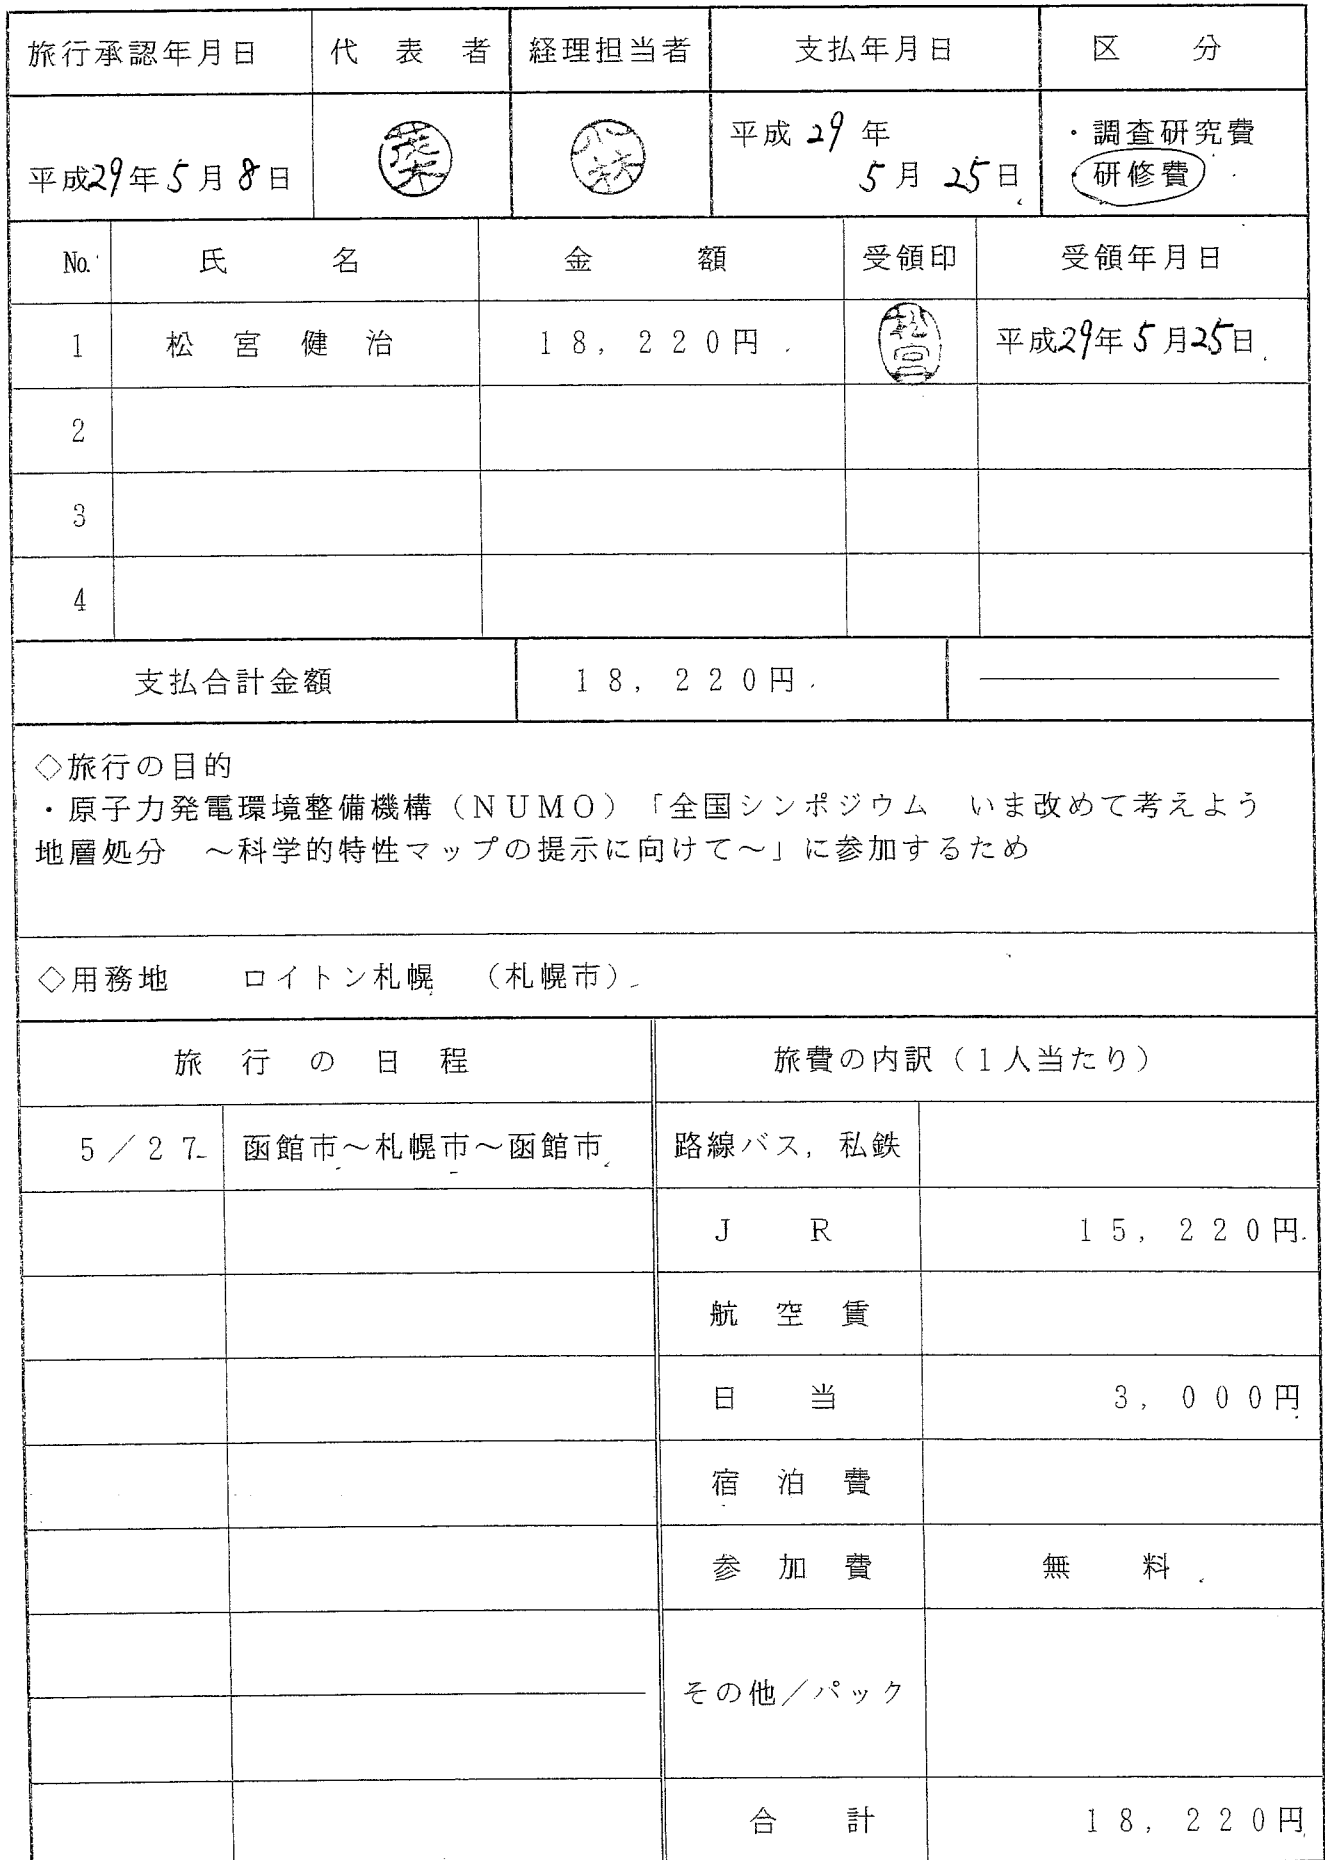 旅行承認年月日 代表者 経理担当者 支払年月日 区分
平成29年5月8日 平成29年5月25日 ・調査研究費
・研修費
No. 氏名 金額 受領印 受領年月日
1 松宮健治 18,220円 松宮 平成29年5月25日
2
3
4
支払合計金額 18,220円
◇旅行の目的
・原子力発電環境整備機構(NUMO)「全国シンポジウム いま改めて考えよう
地層処分 ~科学的特性マップの提示に向けて~」に参加するため
◇用務地 ロイトン札幌 (札幌市)
旅行の日程 旅費の内訳(1人当たり)
5/27 函館市~札幌市~函館市 路線バス,私鉄
JR 15,220円
航空賃
日当 3,000円
宿泊費
参加費 無料
その他/パック
合計 18,220円